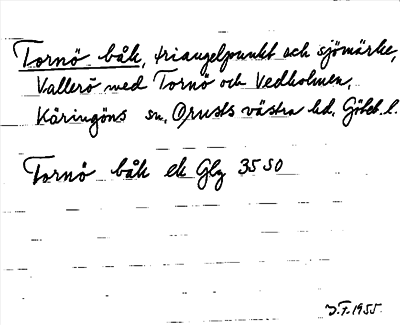 Tornö båk, triangelpunkt och sjömärke,
Vallerö med Tornö och Vedholmen,
Käringöns sn, Orusts västra hd, Göteb. l.
Tornö båk ek Glg 35 SO
J.F. 1955.